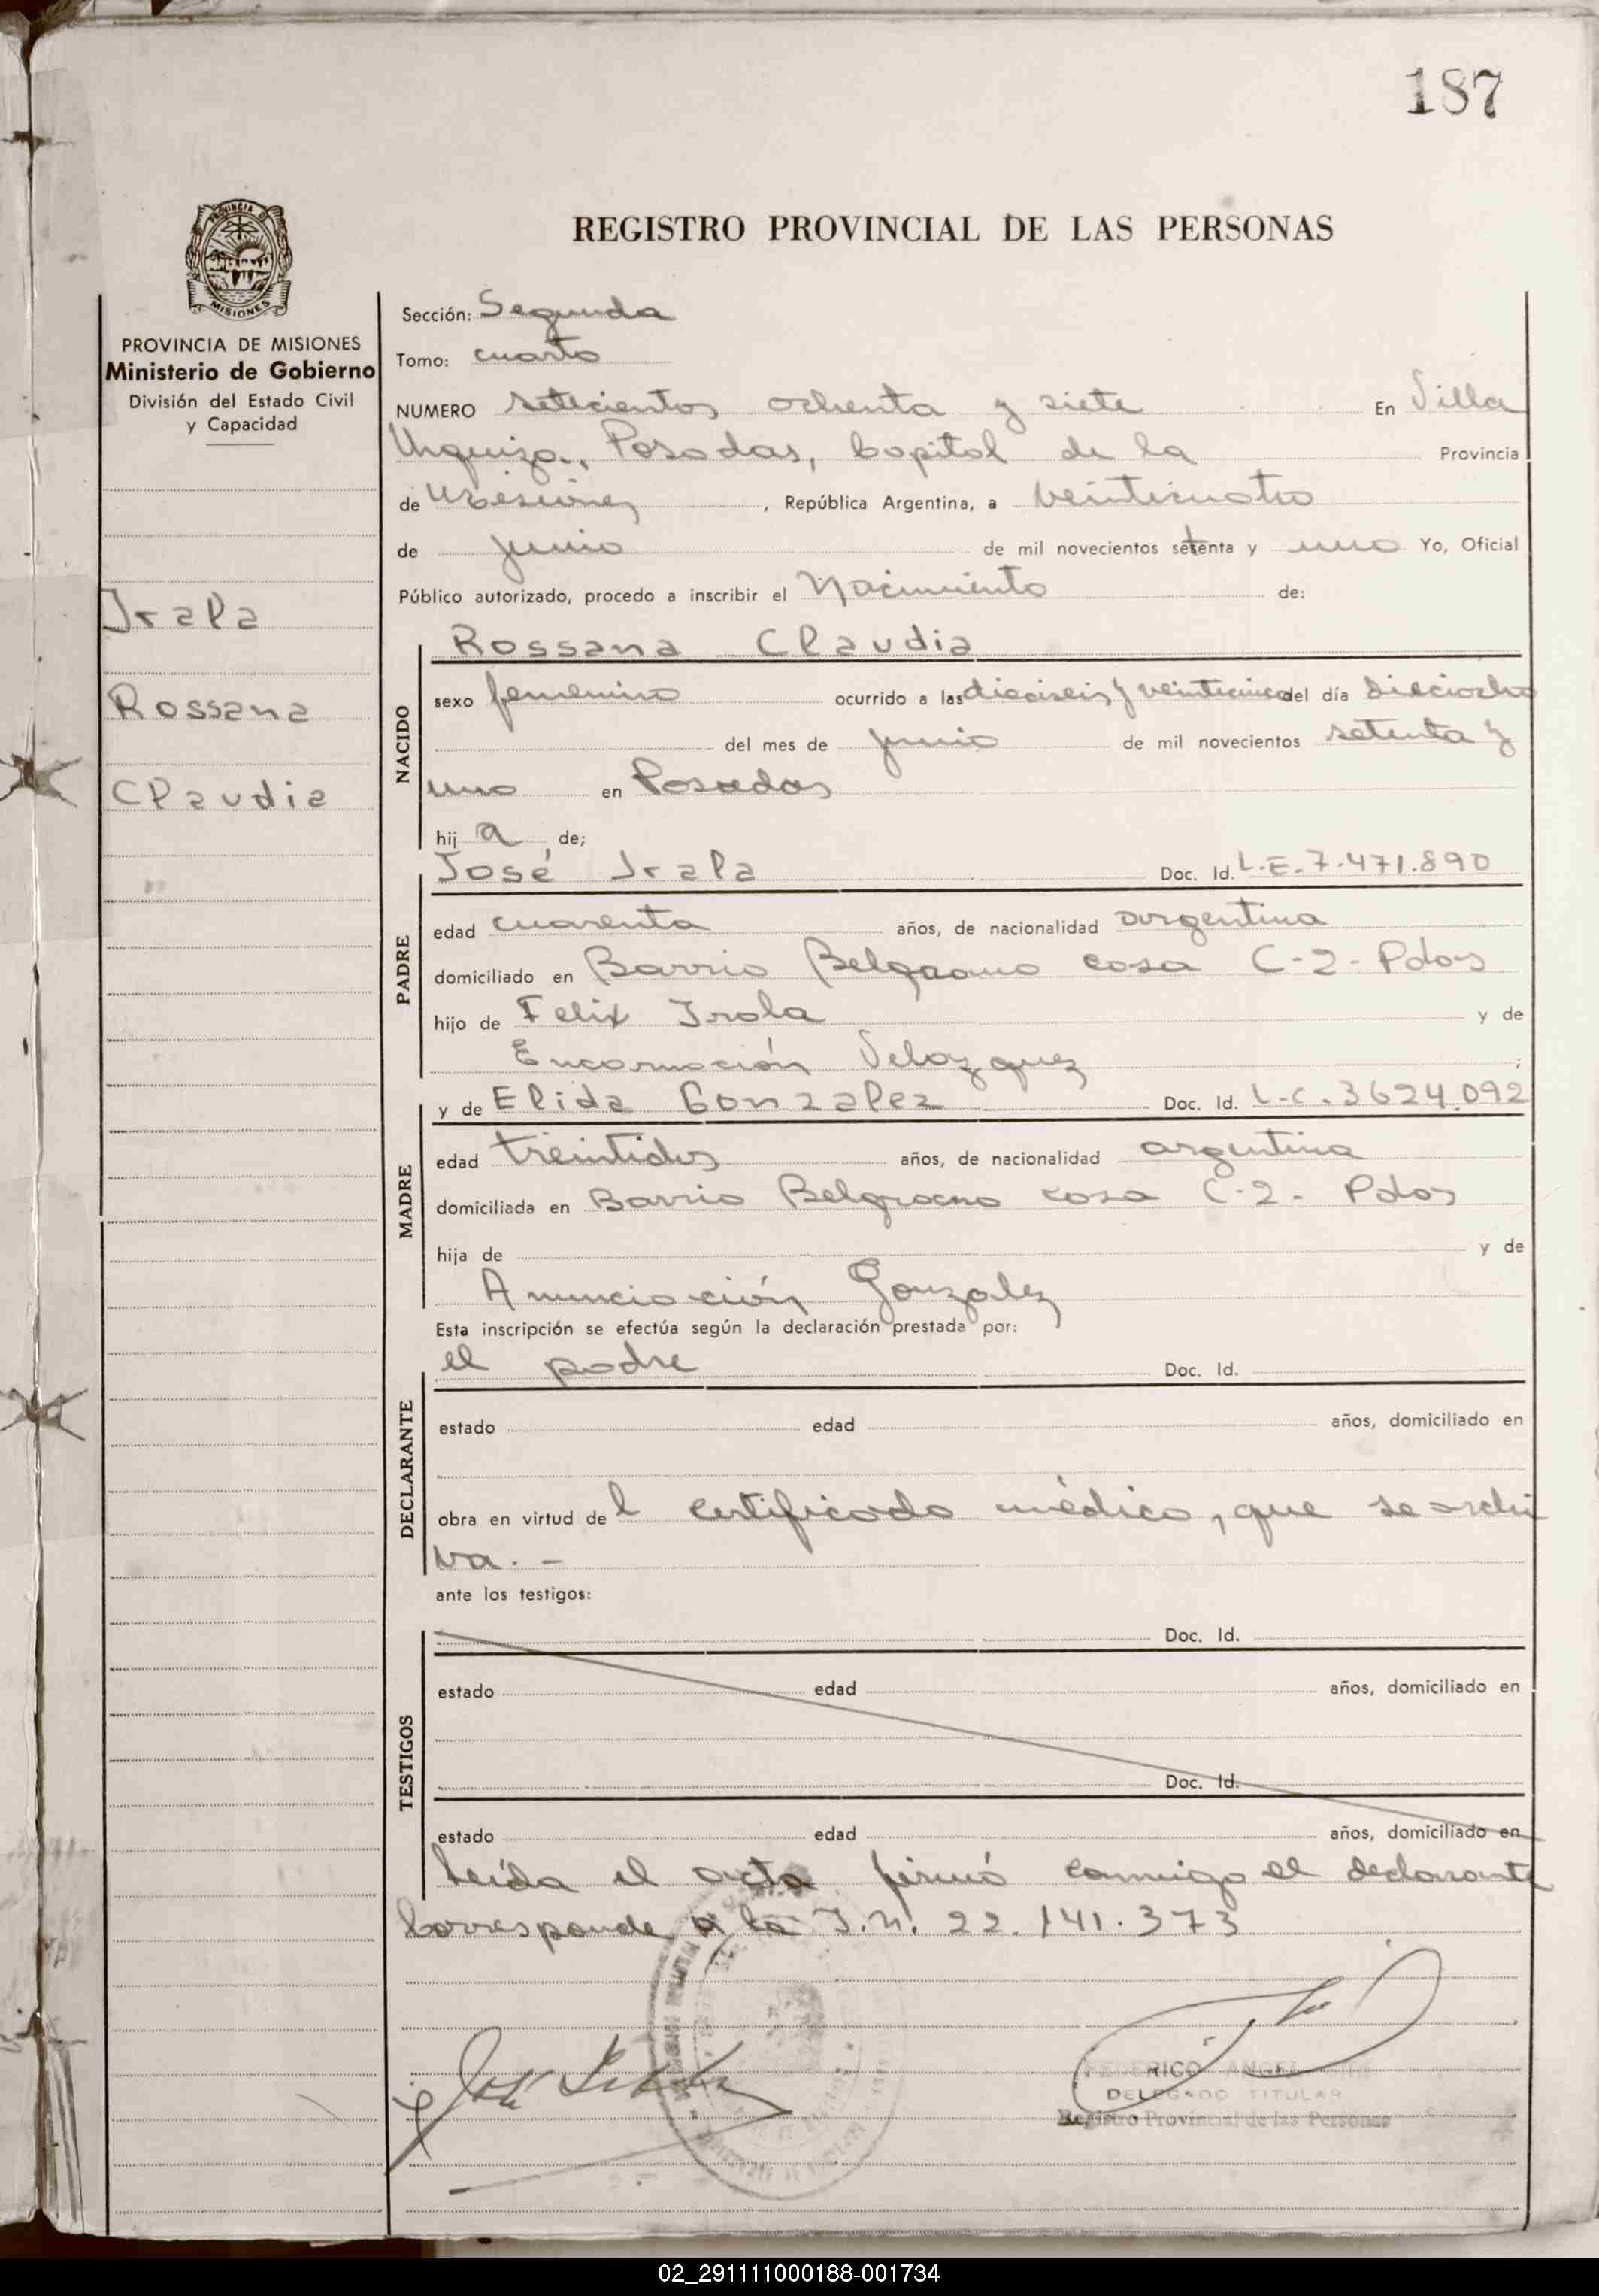 187
REGISTRO PROVINCIAL DE LAS PERSONAS
PROVINCIA DE
MISIONES
PROVINCIA DE MISIONES
Ministerio de Gobierno
División del Estado Civil
y Capacidad
Irala
Rossana
Claudia
Sección: Segunda
Tomo: cuarto
NUMERO setecientos ochenta y siete En Villa
Urquiza, Posadas, Capital de la Provincia
de Misiones, República Argentina, a veinticuatro
de junio de mil novecientos setenta y uno Yo, Oficial
Público autorizado, procedo a inscribir el Nacimiento de:
NACIDO
Rossana Claudia
sexo femenino ocurrido a las dieciseis y veinticinco del día dieciocho
del mes de junio de mil novecientos setenta y
uno en Posadas
hij a de;
PADRE
José Irala Doc. Id. L.E. 7.471.890
edad cuarenta años, de nacionalidad argentina
domiciliado en Barrio Belgrano casa C-2- Pdas
hijo de Felix Irala y de
Encarnación Velazquez ;
MADRE
y de Elida Gonzalez Doc. Id. L.C. 3624.092
edad treintidos años, de nacionalidad argentina
domiciliada en Barrio Belgrano casa C-2- Pdas
hija de y de
Anunciación Gonzalez
Esta inscripción se efectúa según la declaración prestada por:
DECLARANTE
el padre Doc. Id.
estado edad años, domiciliado en
obra en virtud de l certificado médico, que se archi
va. -
ante los testigos:
TESTIGOS
Doc. Id.
estado edad años, domiciliado en
Doc. Id.
estado edad años, domiciliado en
Leída el acta firmó conmigo el declarante
Corresponde a la I.N. 22.141.373
José Irala
FEDERICO ANGEL
DELEGADO TITULAR
Registro Provincial de las Personas
02_291111000188-001734